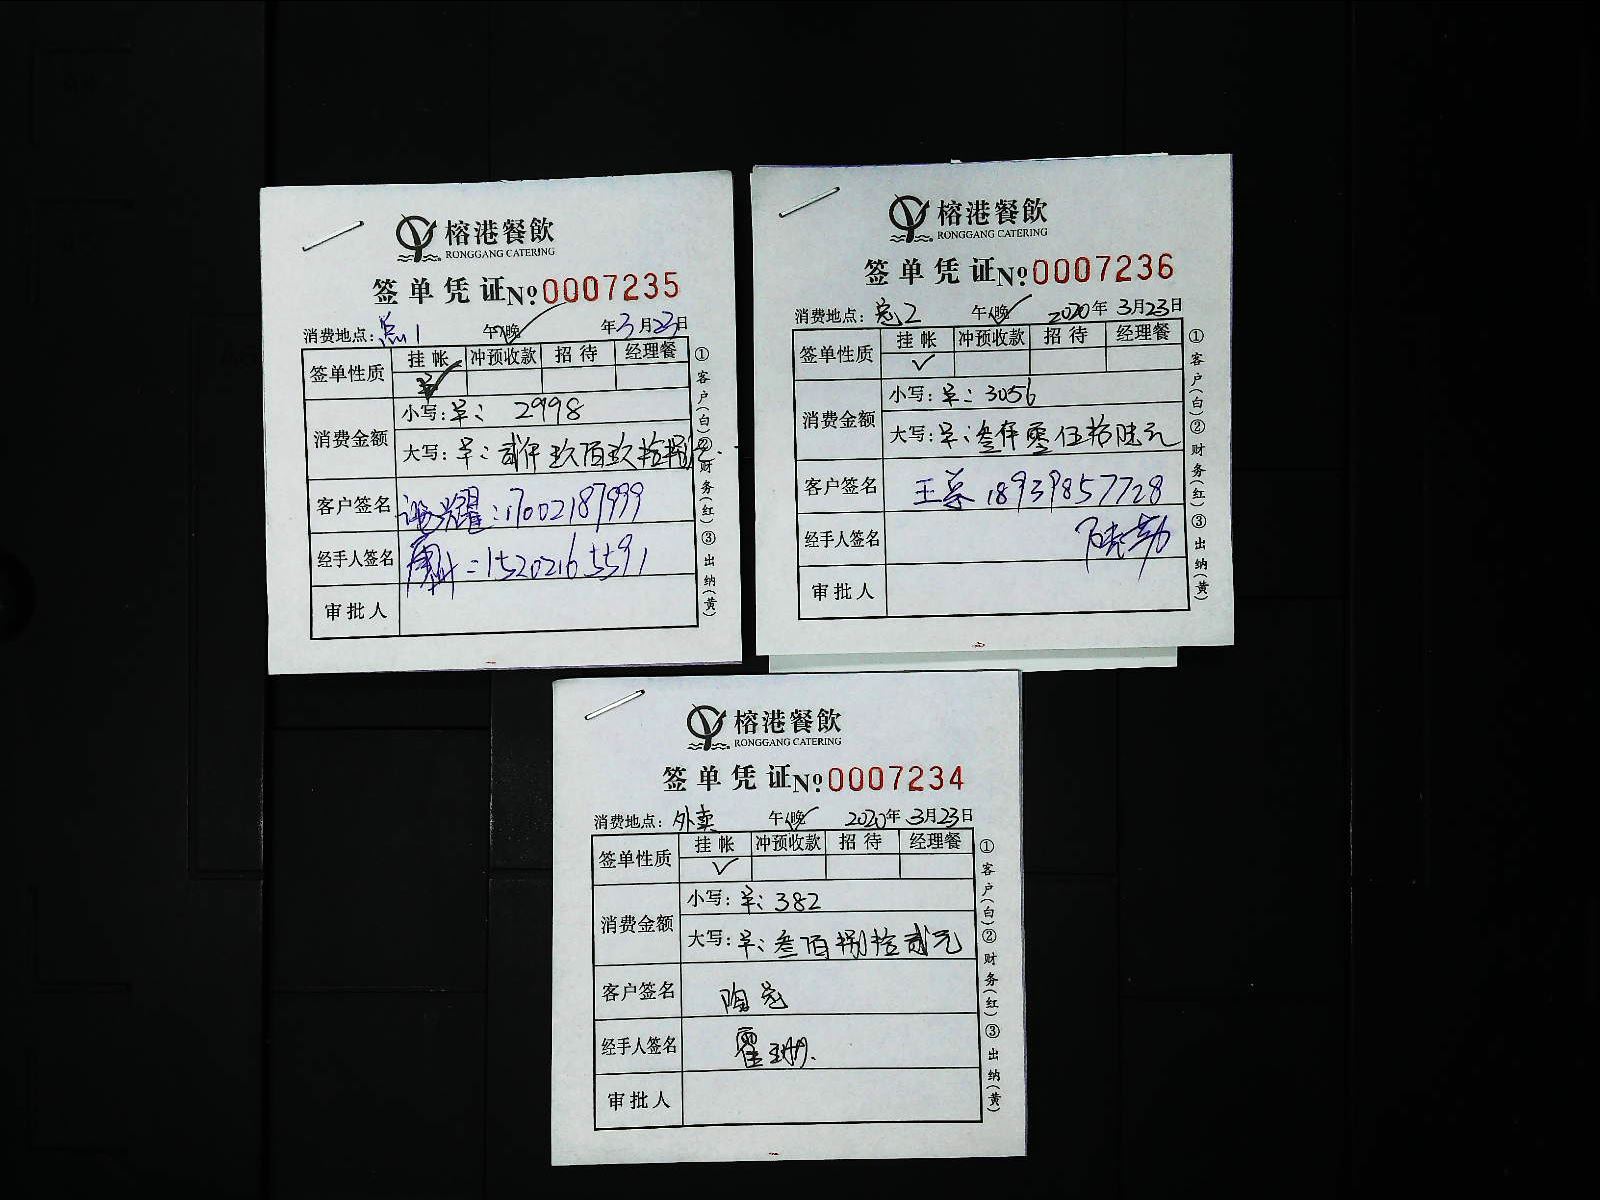 榕港餐飲
RONGGANG CATERING
签单凭证 No 0007235
消费地点: 总1 午、晚 年3月23日
签单性质 挂帐 冲预收款 招待 经理餐
消费金额 小写: 单: 2998
大写: 单: 贰仟玖佰玖拾捌元
客户签名 耀: 17002187999
经手人签名 : 15202165591
审批人
①客户(白)②财务(红)③出纳(黄)
榕港餐飲
RONGGANG CATERING
签单凭证 No 0007236
消费地点: 总2 午、晚 2020年3月23日
签单性质 挂帐 冲预收款 招待 经理餐
✓
消费金额 小写: 单: 3056
大写: 单: 叁仟零伍拾陆元
客户签名 王 18939857728
经手人签名
审批人
①客户(白)②财务(红)③出纳(黄)
榕港餐飲
RONGGANG CATERING
签单凭证 No 0007234
消费地点: 外卖 午、晚 2020年3月23日
签单性质 挂帐 冲预收款 招待 经理餐
✓
消费金额 小写: 单: 382
大写: 单: 叁佰捌拾贰元
客户签名 陶
经手人签名 霍
审批人
①客户(白)②财务(红)③出纳(黄)